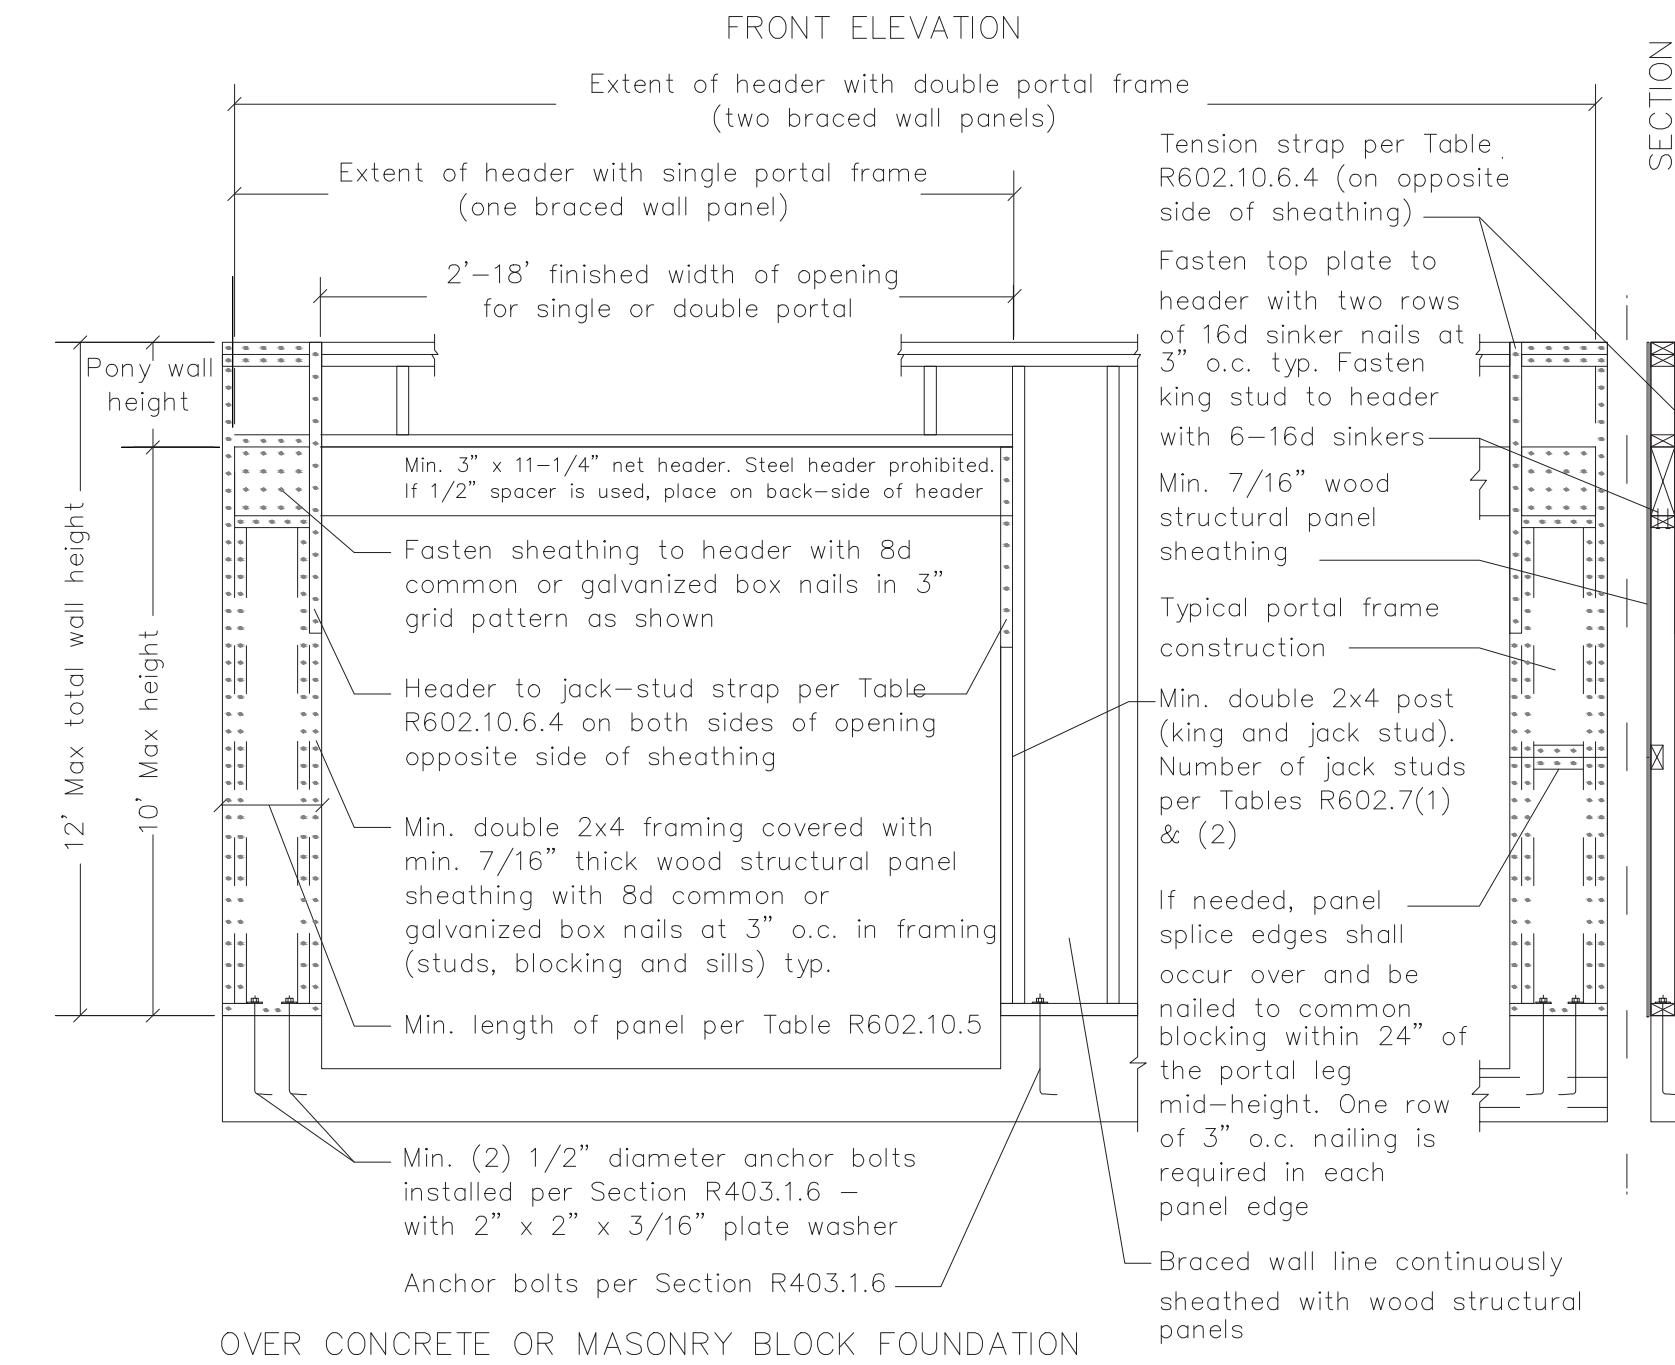 FRONT ELEVATION
SECTION
Extent of header with double portal frame
(two braced wall panels)
Extent of header with single portal frame
(one braced wall panel)
2'-18' finished width of opening
for single or double portal
Pony wall
height
12' Max total wall height
10' Max height
Min. 3" x 11-1/4" net header. Steel header prohibited.
If 1/2" spacer is used, place on back-side of header
Fasten sheathing to header with 8d
common or galvanized box nails in 3"
grid pattern as shown
Header to jack-stud strap per Table
R602.10.6.4 on both sides of opening
opposite side of sheathing
Min. double 2x4 framing covered with
min. 7/16" thick wood structural panel
sheathing with 8d common or
galvanized box nails at 3" o.c. in framing
(studs, blocking and sills) typ.
Min. length of panel per Table R602.10.5
Min. (2) 1/2" diameter anchor bolts
installed per Section R403.1.6 -
with 2" x 2" x 3/16" plate washer
Anchor bolts per Section R403.1.6
Tension strap per Table
R602.10.6.4 (on opposite
side of sheathing)
Fasten top plate to
header with two rows
of 16d sinker nails at
3" o.c. typ. Fasten
king stud to header
with 6-16d sinkers
Min. 7/16" wood
structural panel
sheathing
Typical portal frame
construction
Min. double 2x4 post
(king and jack stud).
Number of jack studs
per Tables R602.7(1)
& (2)
If needed, panel
splice edges shall
occur over and be
nailed to common
blocking within 24" of
the portal leg
mid-height. One row
of 3" o.c. nailing is
required in each
panel edge
Braced wall line continuously
sheathed with wood structural
panels
OVER CONCRETE OR MASONRY BLOCK FOUNDATION